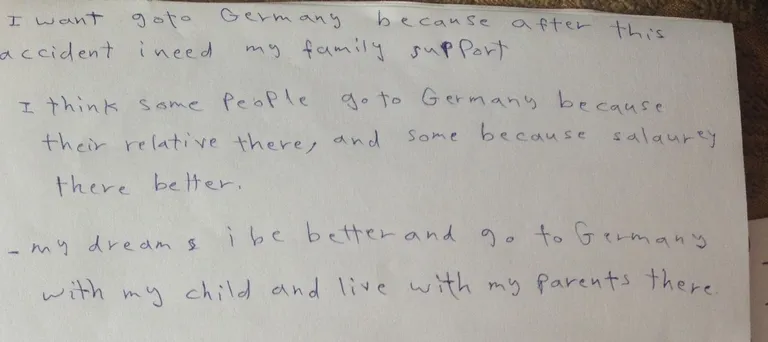 I want goto Germany because after this
accident i need my family support
I think some people go to Germany because
their relative there, and some because salaurey
there better.
- my dreams i be better and go to Germany
with my child and live with my parents there.